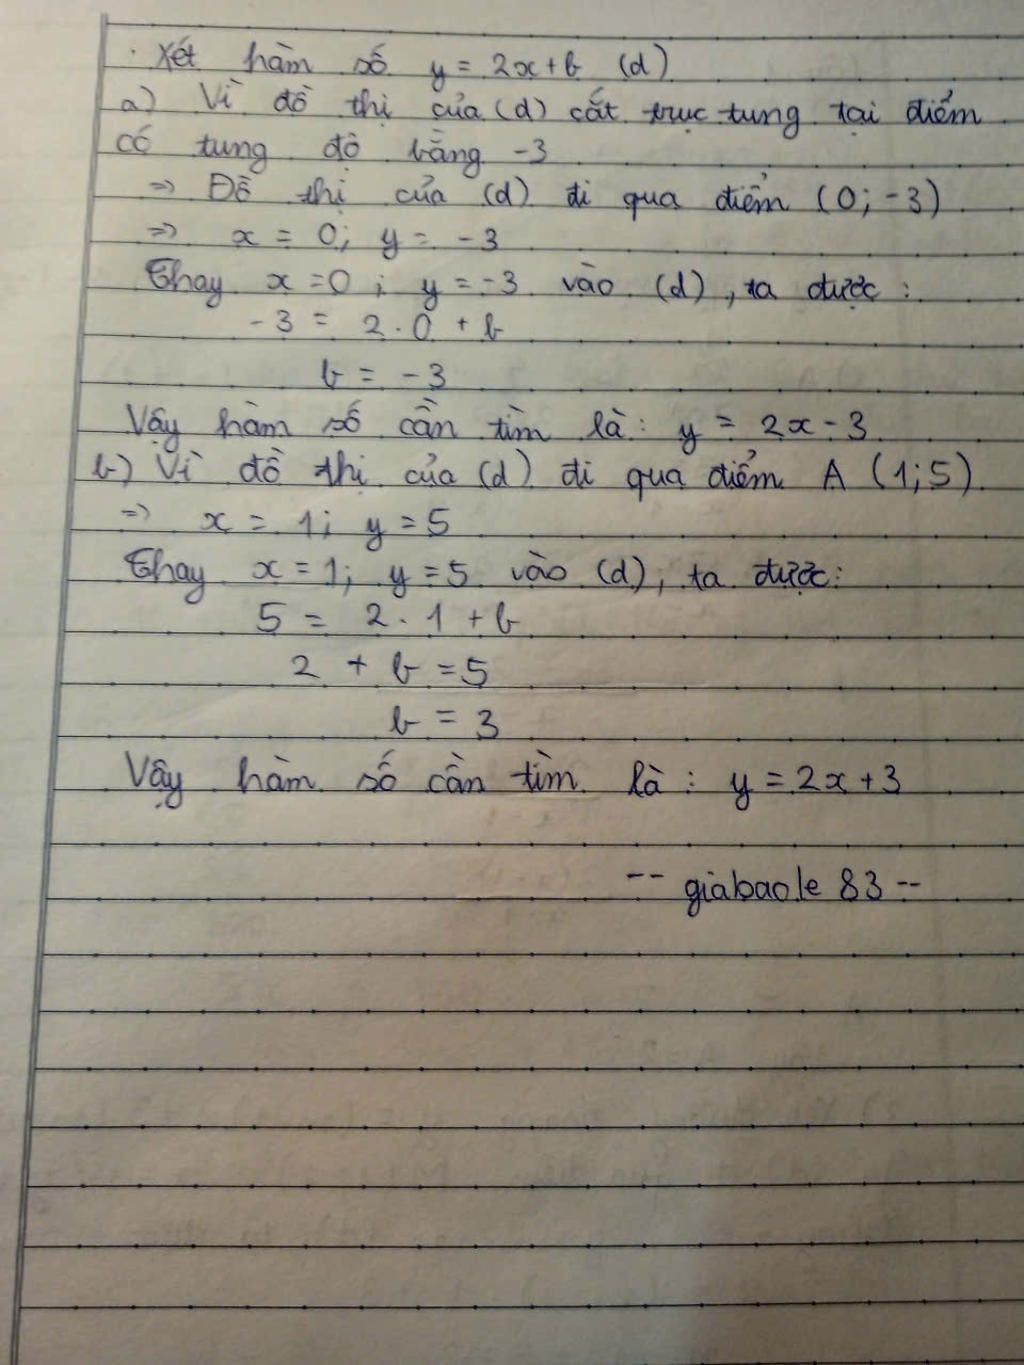 . Xét hàm số y = 2x + b (d)
a) Vì đồ thị của (d) cắt trục tung tại điểm
có tung độ bằng -3
=> Đồ thị của (d) đi qua điểm (0; -3)
=> x = 0; y = -3
Thay x = 0 ; y = -3 vào (d), ta được :
-3 = 2 . 0 + b
b = -3
Vậy hàm số cần tìm là: y = 2x - 3
b) Vì đồ thị của (d) đi qua điểm A (1; 5)
=> x = 1; y = 5
Thay x = 1; y = 5 vào (d), ta được:
5 = 2 . 1 + b
2 + b = 5
b = 3
Vậy hàm số cần tìm là : y = 2x + 3
-- giabaole 83 --